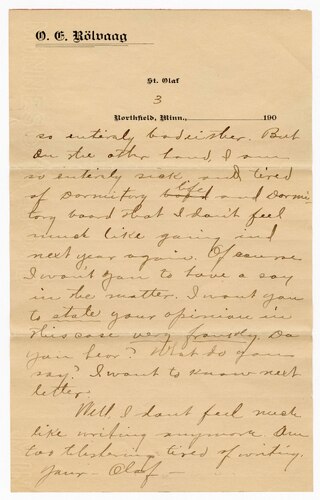 O. E. Rölvaag
St. Olaf
3
Northfield, Minn., 190
so entirely bad either. But
on the other hand, I am
so entirely sick and tired
of Dormitory life and Dormi
tory board that I don't feel
much like going and
next year again. Of course
I want you to have a say
in the matter. I want you
to state your opinion in
this case very frankly. Do
you hear? What do you
say? I want to know next
letter.
Well, I don't feel much
like writing anymore. Am
too blistering tired of writing.
Your - Olaf -